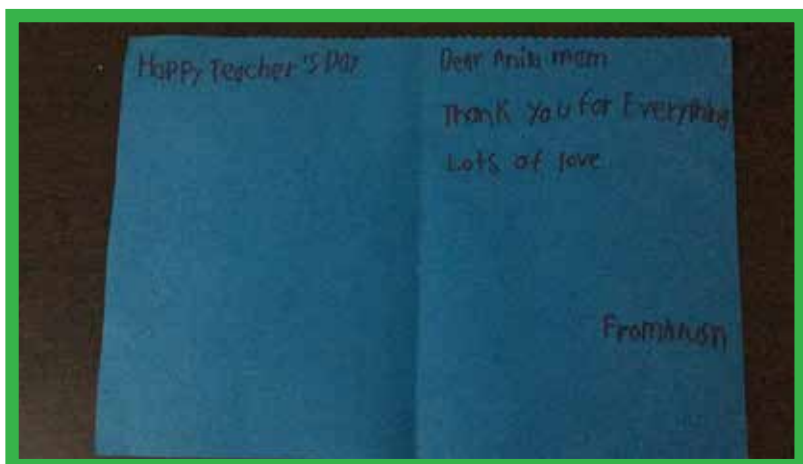 Happy Teacher's Day
Dear Anita mam
Thank you for Everything
Lots of love
From